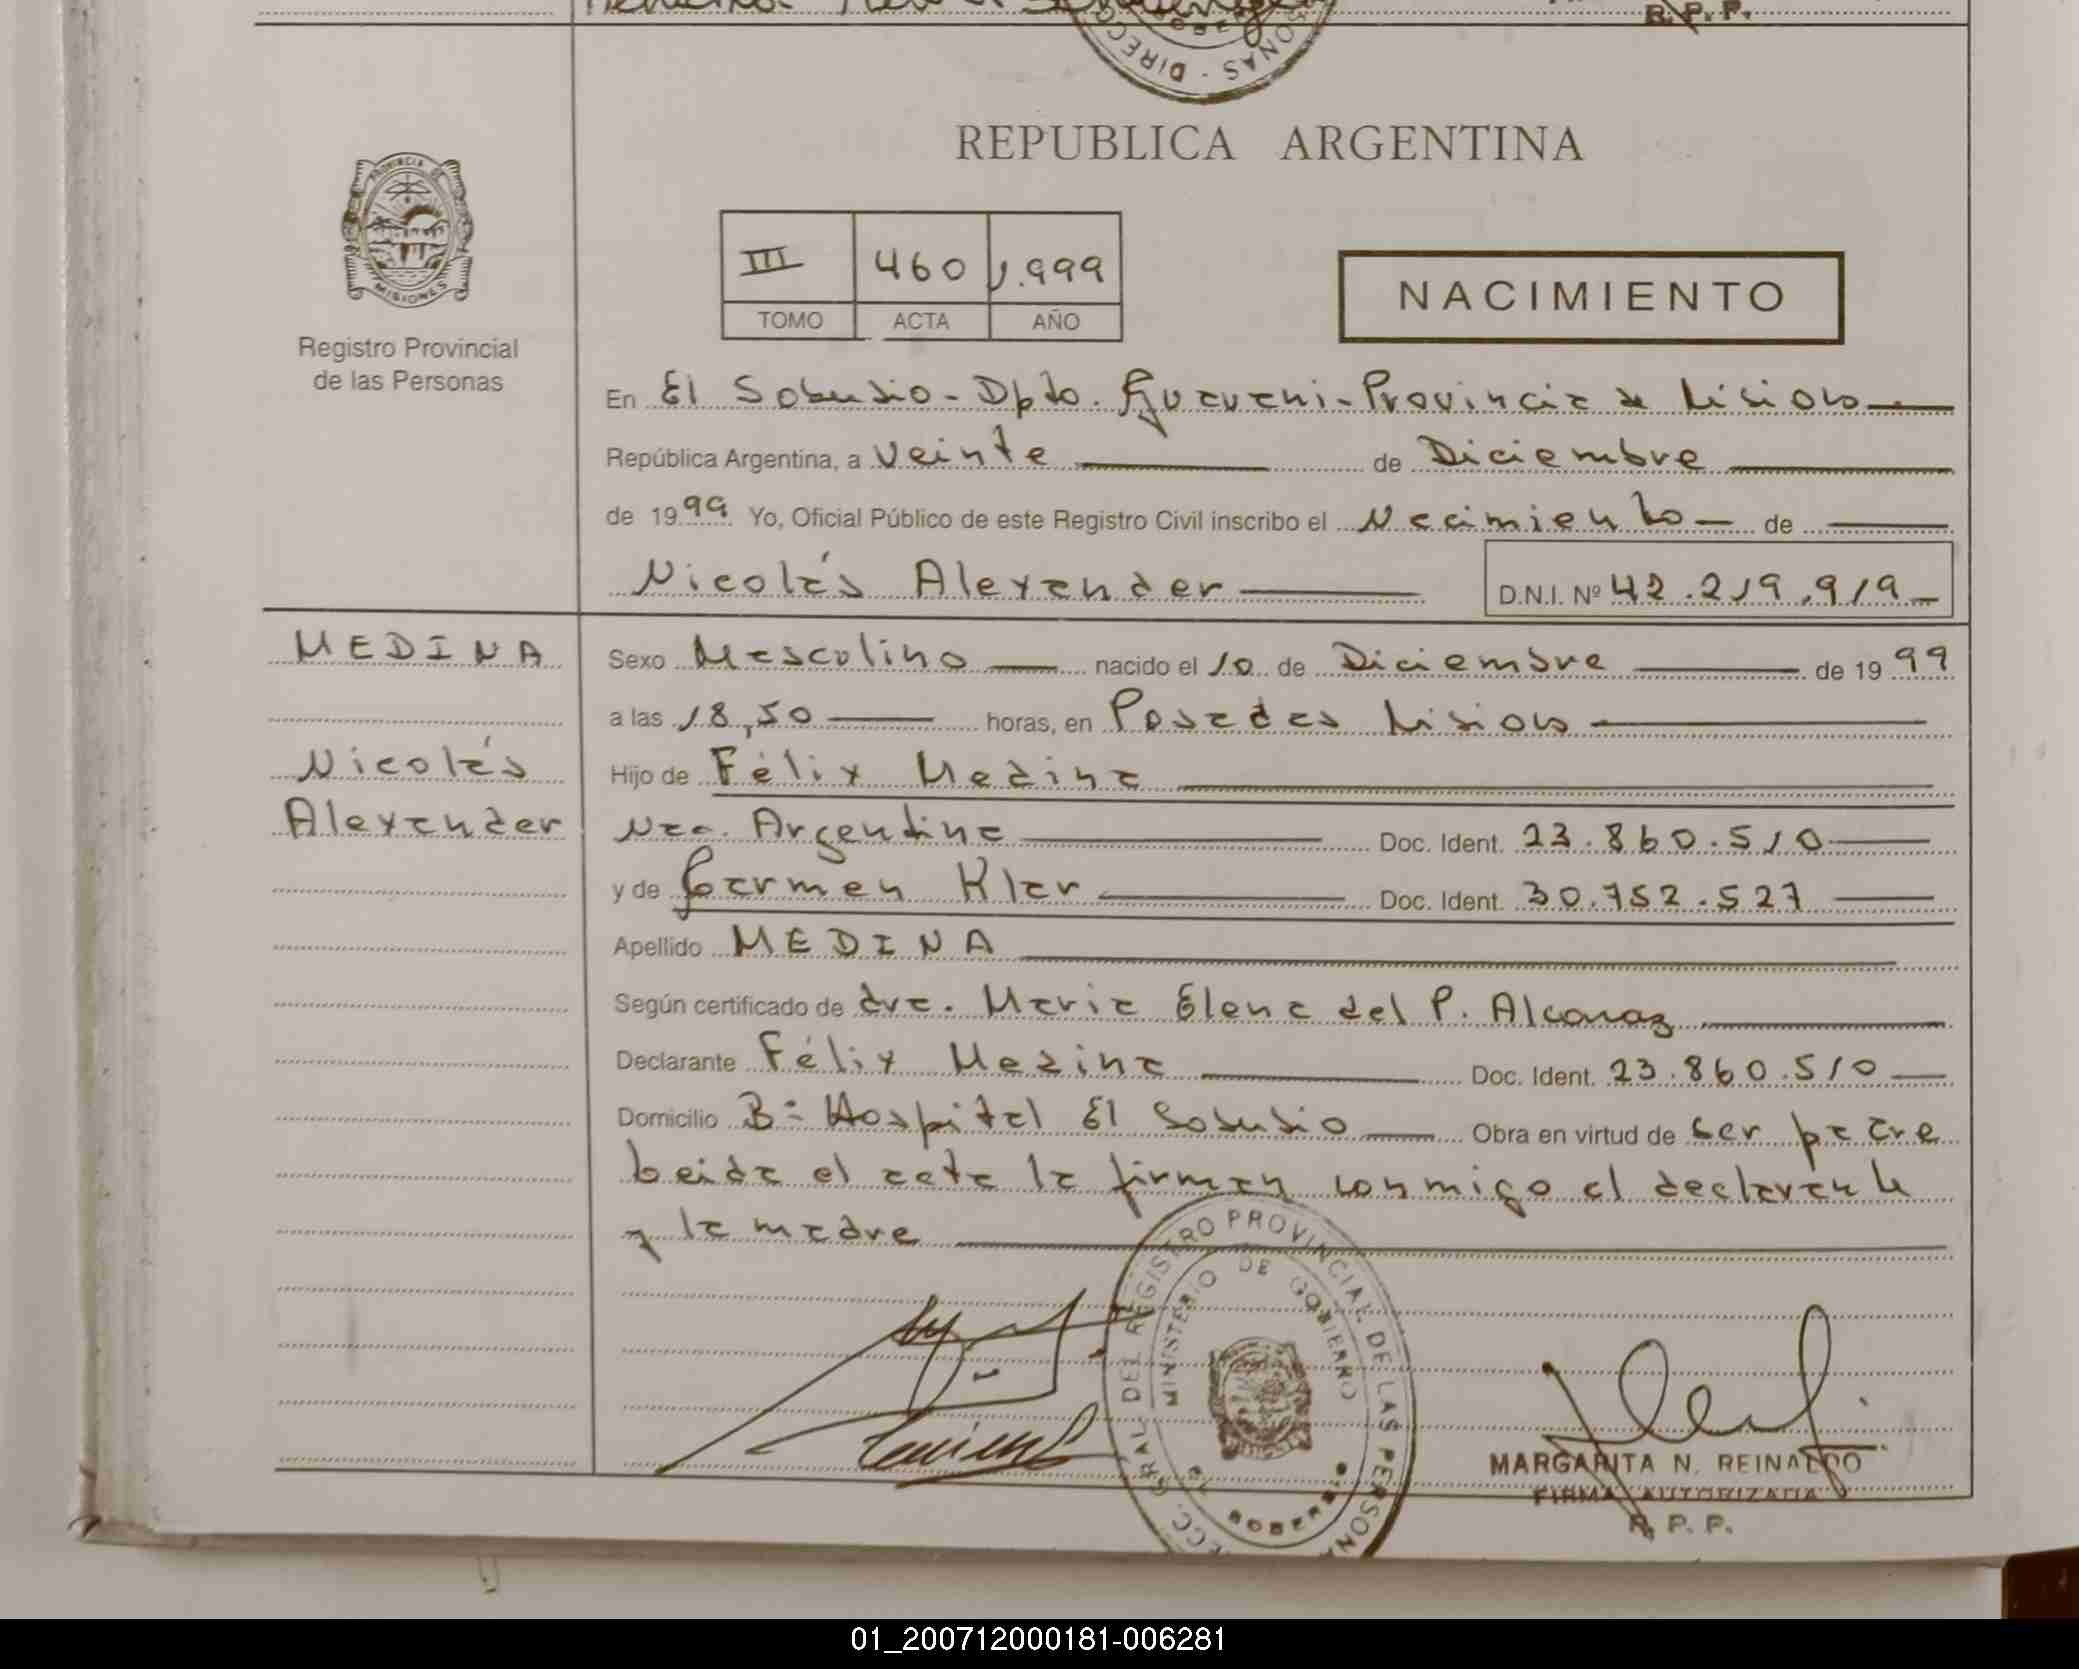 R. P. P.
DIRECC
ONAS
REPUBLICA ARGENTINA
PROVINCIA DE
MISIONES
Registro Provincial
de las Personas
III 460 1.999
TOMO ACTA AÑO
NACIMIENTO
En El Soberbio - Dpto. Guaraní - Provincia de Misiones
República Argentina, a Veinte de Diciembre
de 1999 Yo, Oficial Público de este Registro Civil inscribo el Nacimiento de
Nicolás Alexander D.N.I. Nº 42.219.919
MEDINA
Nicolás
Alexander
Sexo Masculino nacido el 10 de Diciembre de 1999
a las 18,50 horas, en Posadas Misiones
Hijo de Félix Medina
Nac. Argentina Doc. Ident. 23.860.510
y de Carmen Klar Doc. Ident. 30.752.527
Apellido MEDINA
Según certificado de dra. Maria Elena del P. Alcaraz
Declarante Félix Medina Doc. Ident. 23.860.510
Domicilio Bº Hospital El Soberbio Obra en virtud de ser padre
Leida el acta la firman conmigo el declarante
y la madre
DIRECC. GRAL. DEL REGISTRO PROVINCIAL DE LAS PERSONAS
MINISTERIO DE GOBIERNO
MARGARITA N. REINALDO
FIRMA AUTORIZADA
R. P. P.
01_200712000181-006281